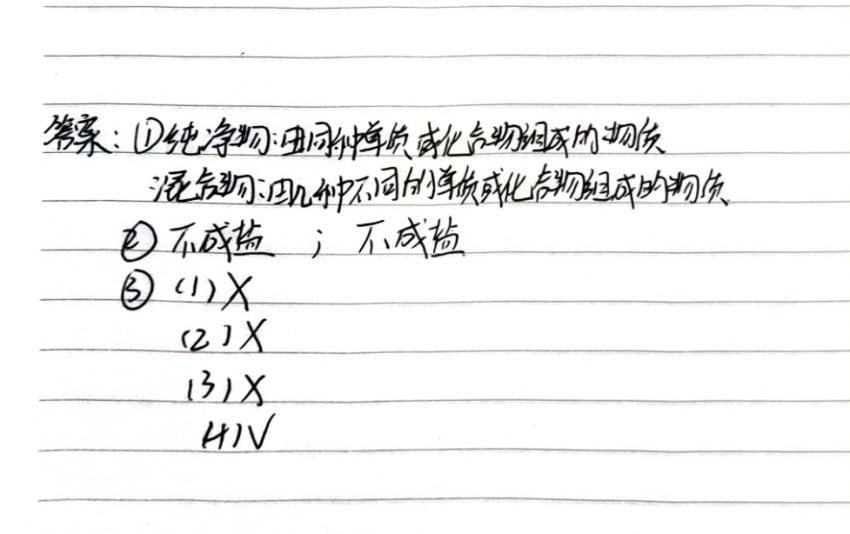 答案：①纯净物：由同种单质或化合物组成的物质
混合物：由几种不同的单质或化合物组成的物质
② 不成盐 ； 不成盐
③ (1) X
(2) X
(3) X
(4) √